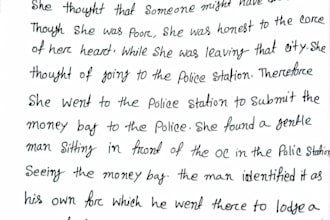 She thought that someone might have
Though She was Poor, She was honest to the core
of here heart. While She was leaving that city. She
thought of going to the Police Station. Therefore
She went to the Police Station to Submit the
money bag to the Police. She found a gentle
man Sitting in front of the OC in the Palic Station
Seeing the money bag the man identified it as
his own forc which he went there to lodge a